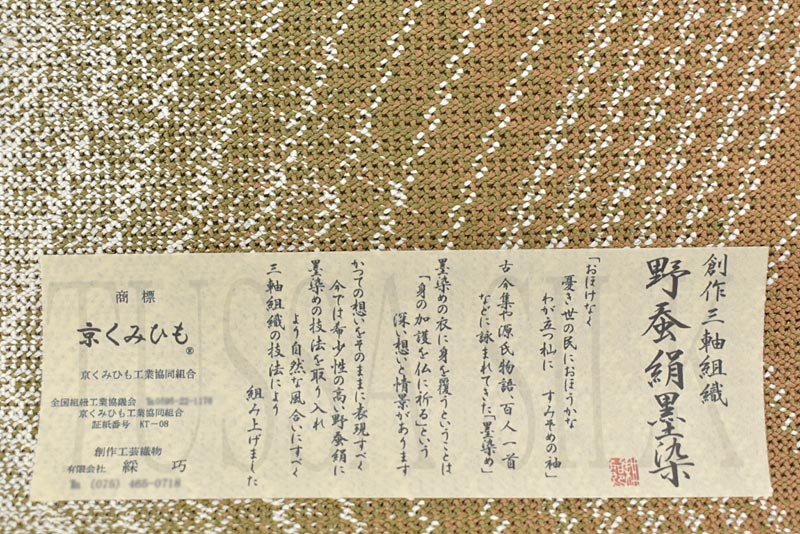 創作三軸組織
野蚕絹墨染
「おほけなく
憂き世の民におほうかな
わが立つ杣に すみぞめの袖」
古今集や源氏物語、百人一首
などに詠まれてきた「墨染め」
墨染めの衣に身を覆うということは
「身の加護を仏に祈る」という
深い想いと情景があります
かつての想いをそのままに表現すべく
今では希少性の高い野蚕絹に
墨染めの技法を取り入れ
より自然な風合いにすべく
三軸組織の技法により
組み上げました
商標
京くみひも®
京くみひも工業協同組合
全国組紐工業協議会
京くみひも工業協同組合
証紙番号 KT-08
創作工芸織物
有限会社 綵巧
℡ (075) 465-0718